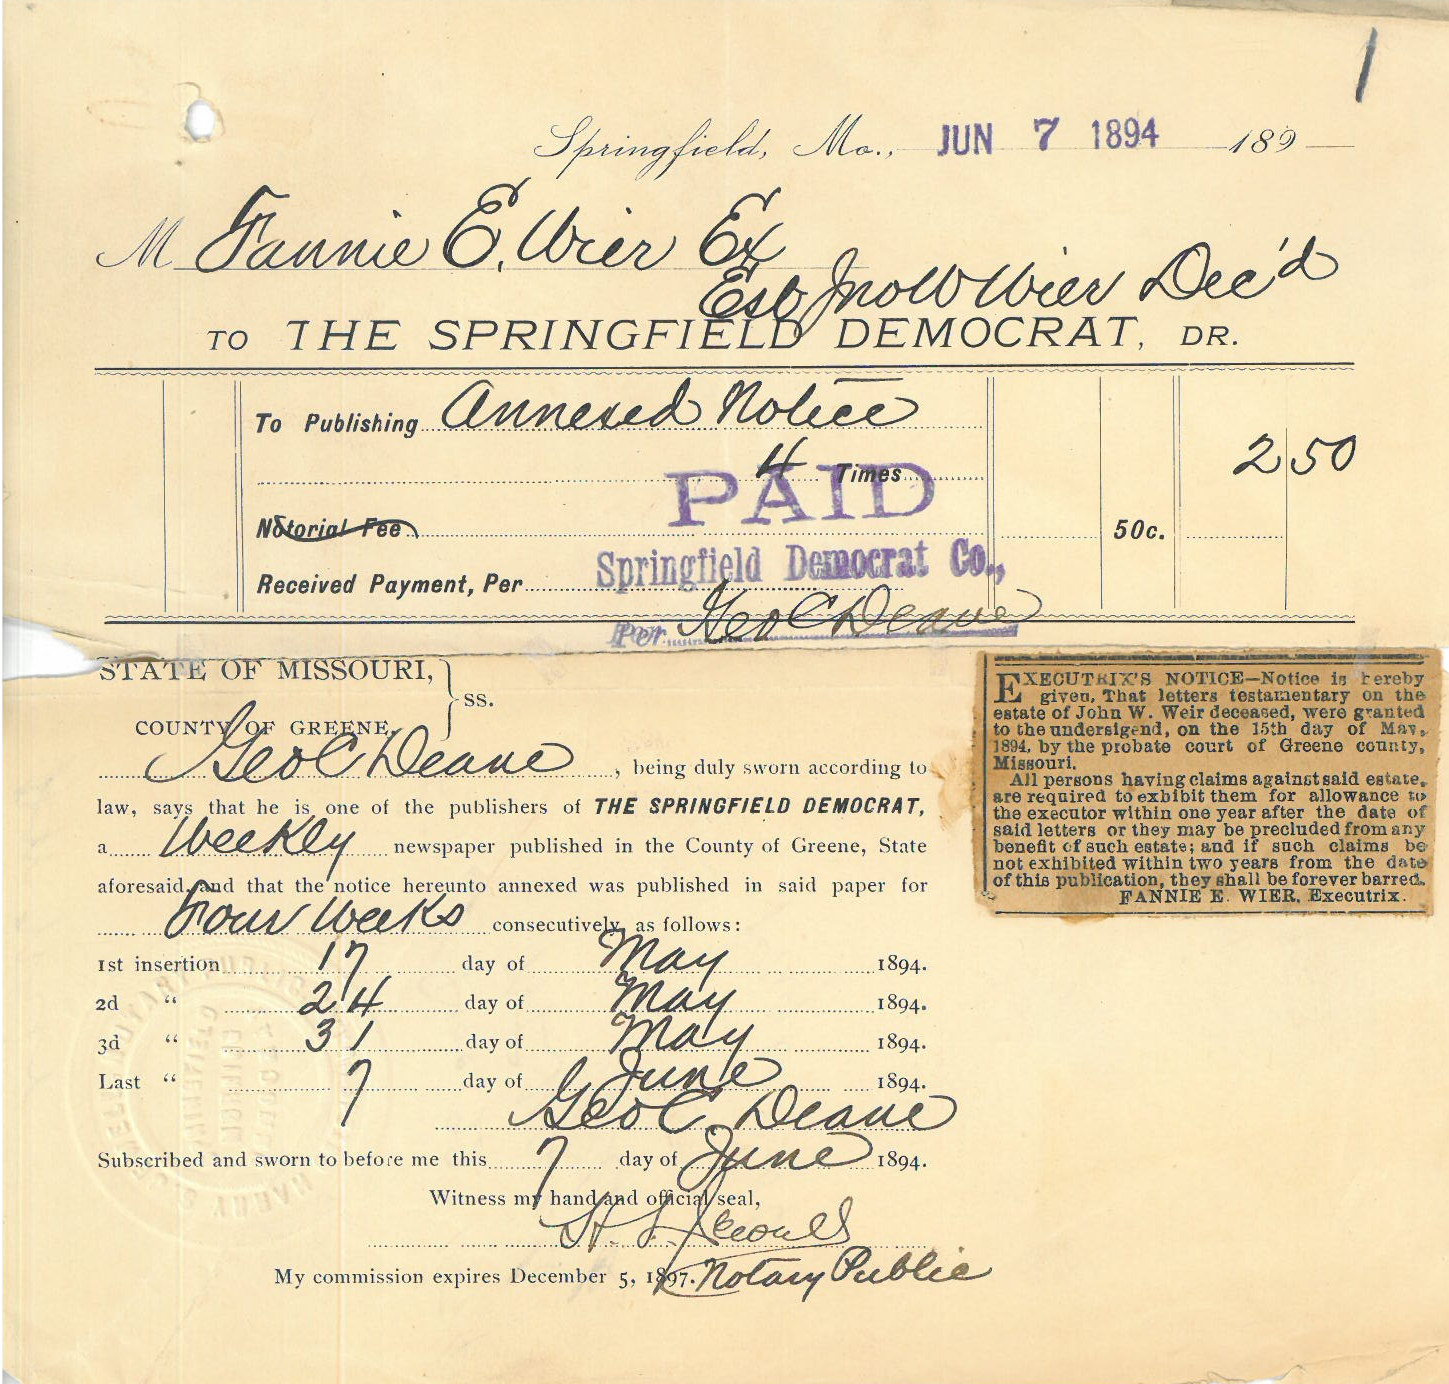 1
Springfield, Mo., JUN 7 1894 189
M Fannie E. Wier Ex
Est Jno W Wier Dec'd
TO THE SPRINGFIELD DEMOCRAT, DR.
To Publishing Annexed Notice
4 Times 2 50
PAID
Notorial Fee 50c.
Springfield Democrat Co.,
Received Payment, Per
Per Geo C Deane
STATE OF MISSOURI,
COUNTY OF GREENE, } ss.
Geo C Deane, being duly sworn according to
law, says that he is one of the publishers of THE SPRINGFIELD DEMOCRAT,
a Weekly newspaper published in the County of Greene, State
aforesaid, and that the notice hereunto annexed was published in said paper for
Four Weeks consecutively, as follows:
1st insertion 17 day of May 1894.
2d " 24 day of May 1894.
3d " 31 day of May 1894.
Last " 7 day of June 1894.
Geo C. Deane
Subscribed and sworn to before me this 7 day of June 1894.
Witness my hand and official seal,
H. L.
My commission expires December 5, 1897. Notary Public
EXECUTRIX'S NOTICE—Notice is hereby
given, That letters testamentary on the
estate of John W. Weir deceased, were granted
to the undersigend, on the 15th day of May,
1894, by the probate court of Greene county,
Missouri.
All persons having claims against said estate,
are required to exbibit them for allowance to
the executor within one year after the date of
said letters or they may be precluded from any
benefit of such estate; and if such claims be
not exhibited within two years from the date
of this publication, they shall be forever barred.
FANNIE E. WIER, Executrix.